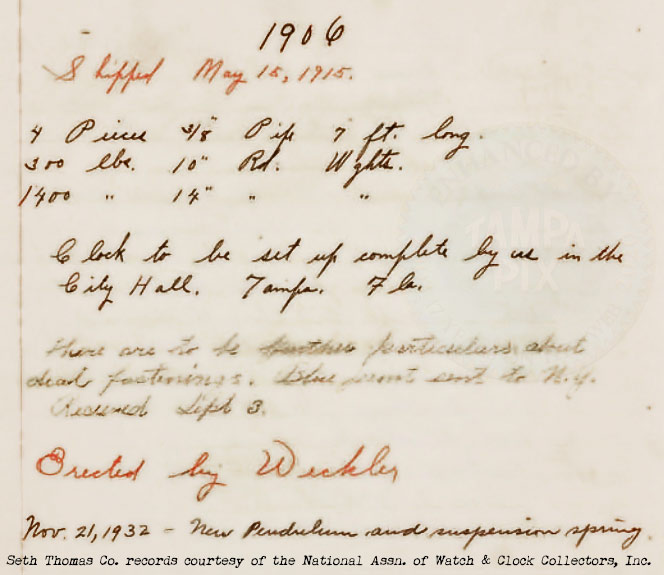 1906
Shipped May 15, 1915.
4 Pieces 3/8" Pipe 7 ft. long.
300 lbs. 10" Rd. Wghts.
1400 " 14" " "
Clock to be set up complete by us in the
City Hall. Tampa. Fla.
There are to be further particulars about
dead fastenings. Blue print sent to N.Y.
Received Sept 3.
Erected by Weckler
Nov. 21, 1932 - New Pendulum and suspension spring.
ENHANCED BY
TAMPA
PIX
Seth Thomas Co. records courtesy of the National Assn. of Watch & Clock Collectors, Inc.